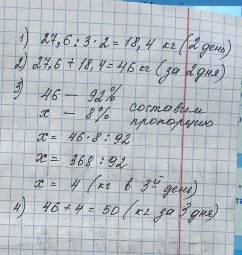 1) 27,6 : 3 · 2 = 18,4 кг (2 день)
2) 27,6 + 18,4 = 46 кг (за 2 дня)
3)
46 — 92%
x — 8% составим пропорцию
x = 46 · 8 : 92
x = 368 : 92
x = 4 (кг в 3й день)
4) 46 + 4 = 50 (кг за 3 дня)